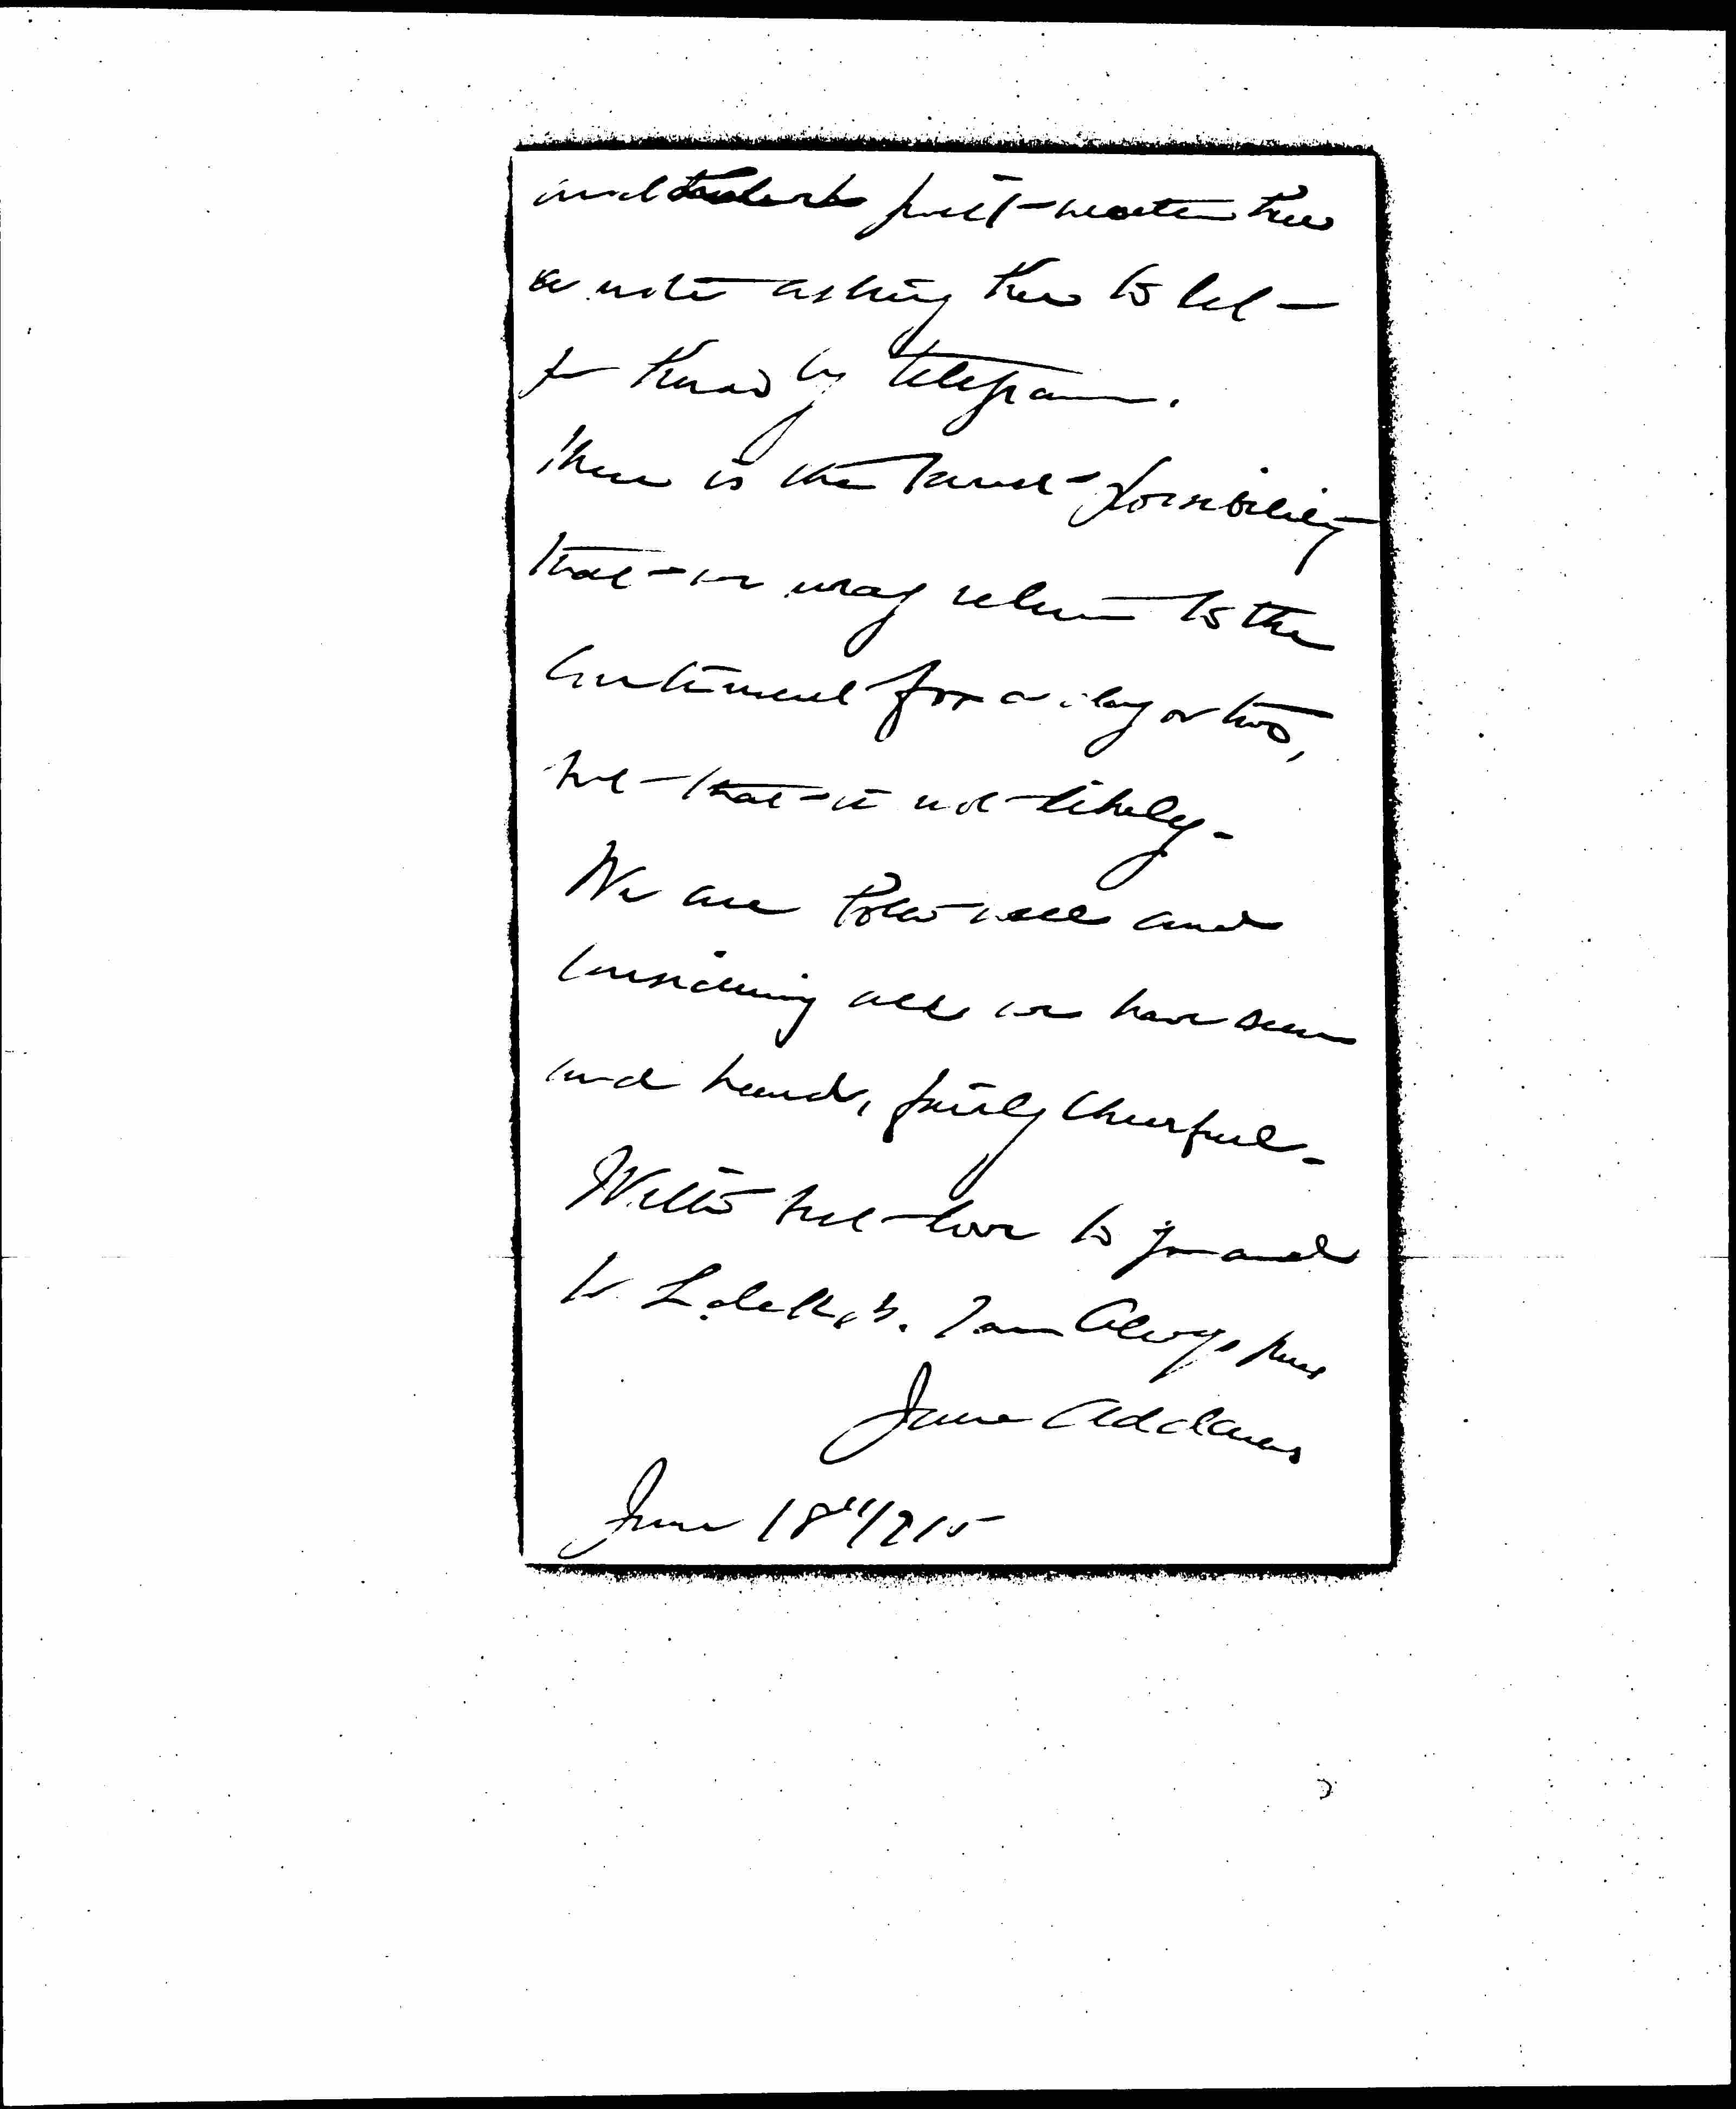 and just written him
a note asking him to let
you know by telegram.
There is the barest possibility
that we may return to the
Continent for a day or two,
but that is not likely.
We are both well and
considering all we have seen
and heard, fairly cheerful.
With best love to you and
to I am always yours
Jane Addams
June 18" 1915